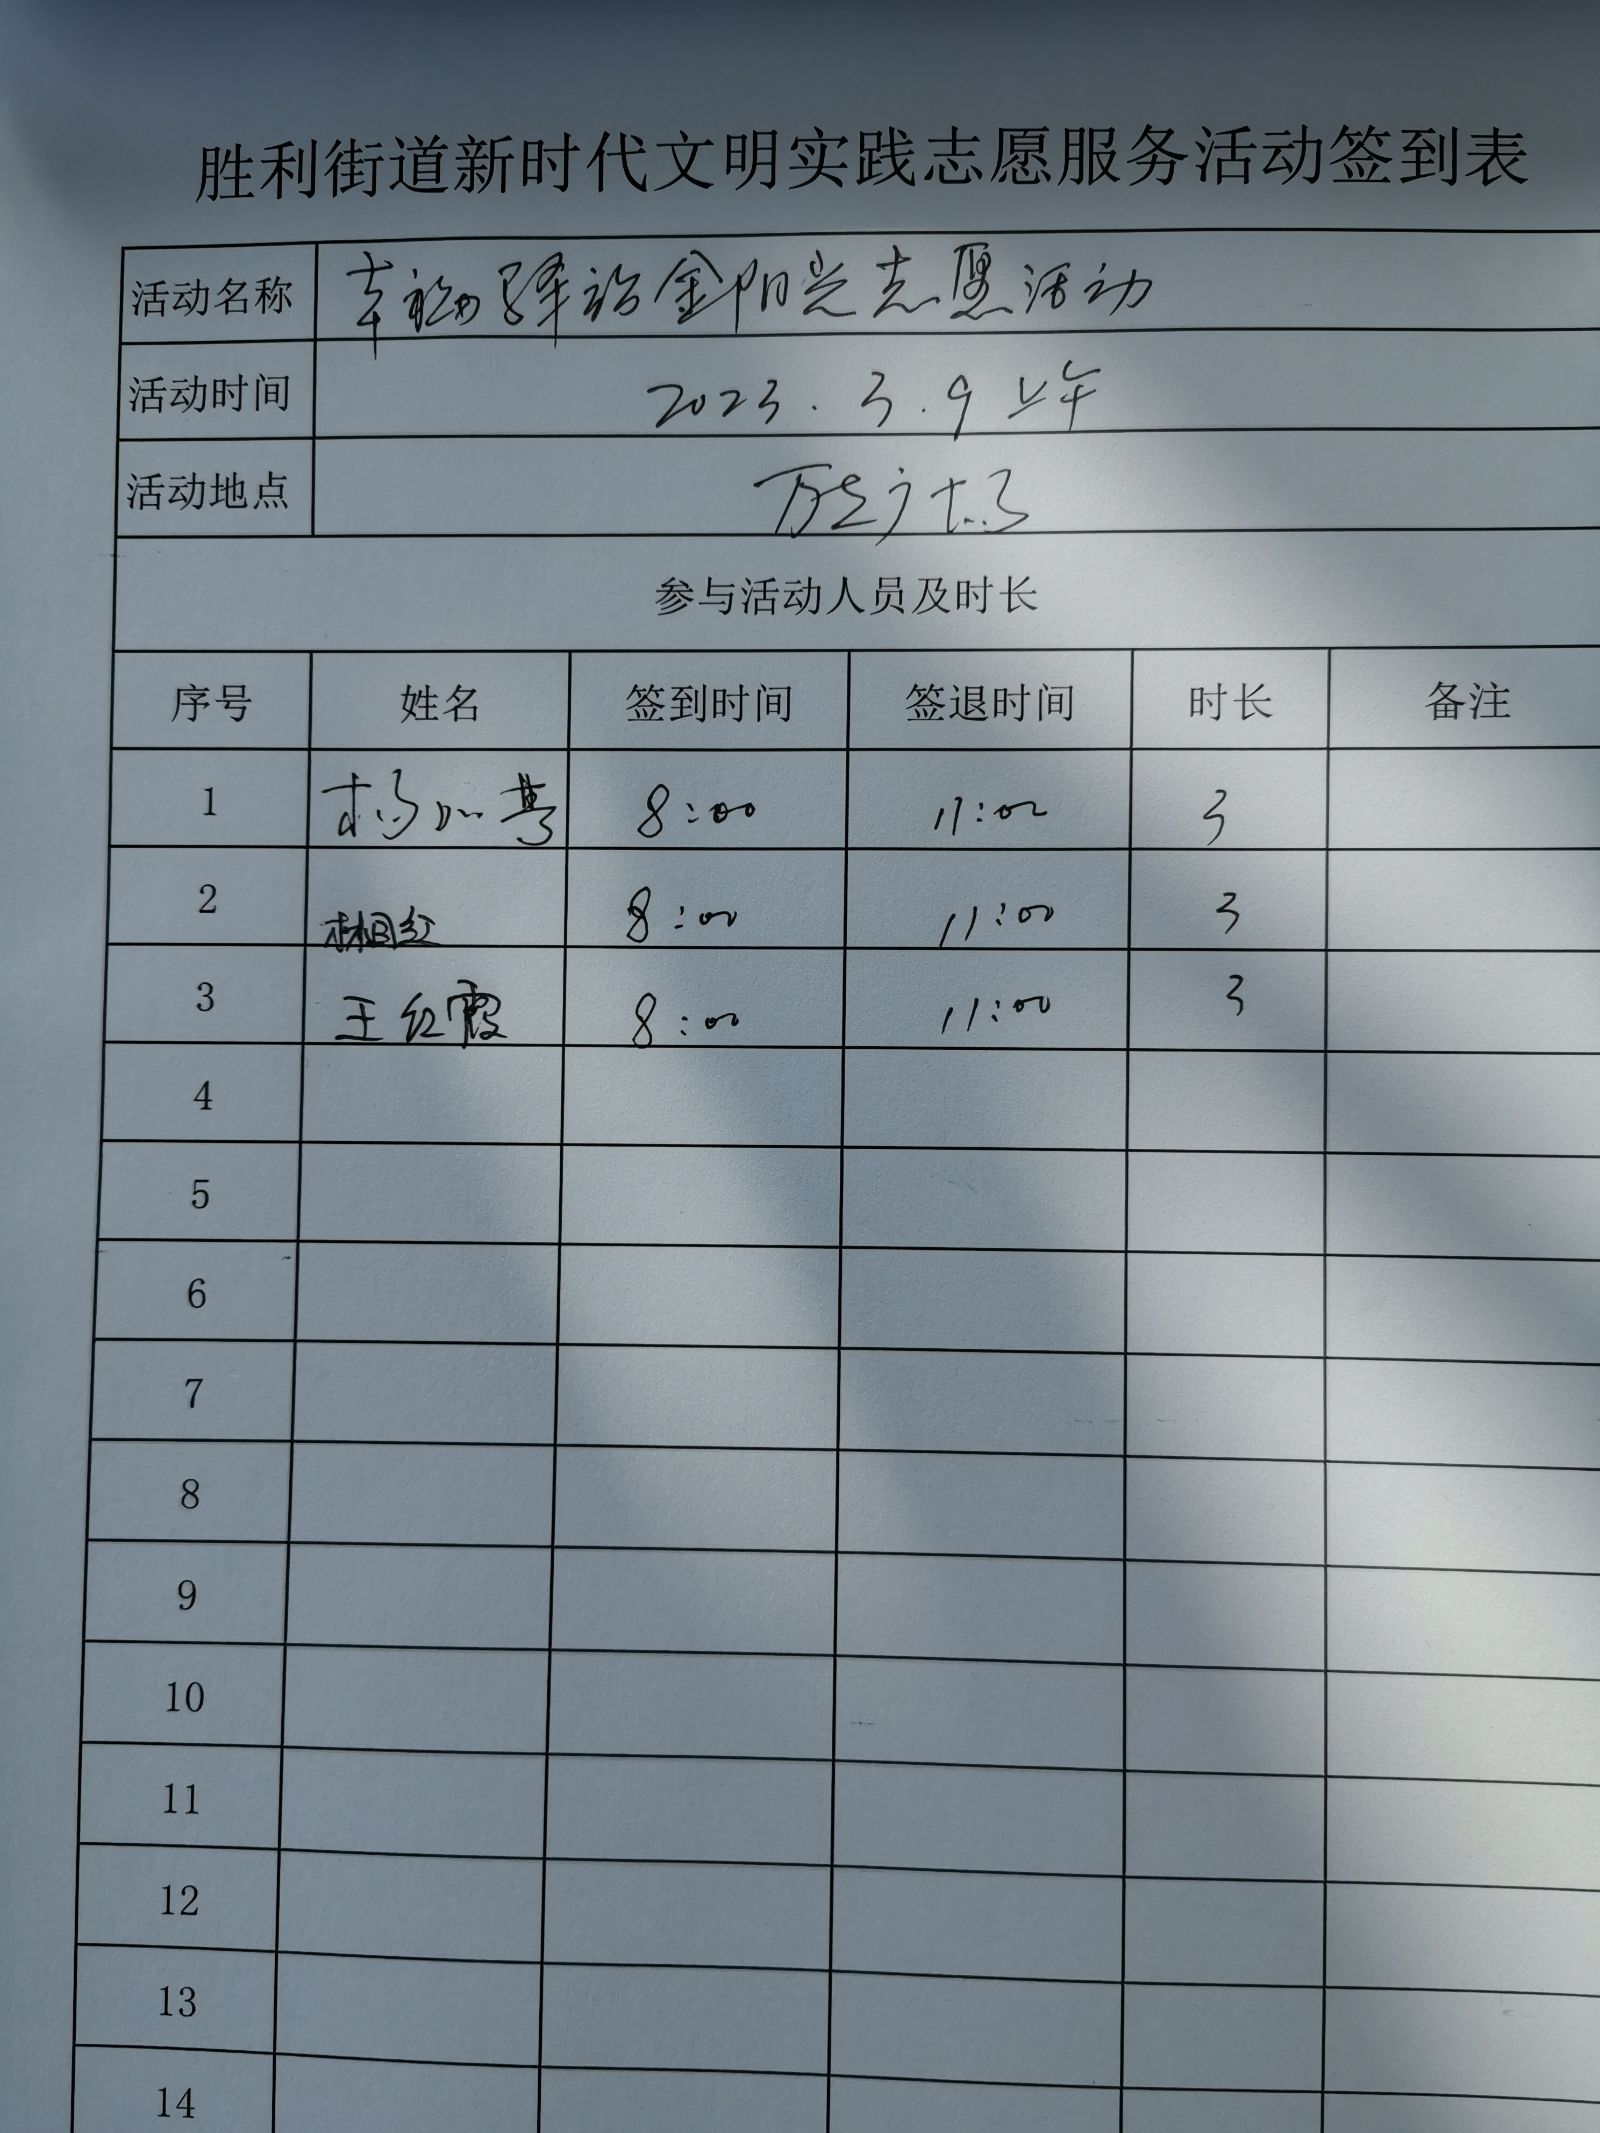 胜利街道新时代文明实践志愿服务活动签到表
活动名称 幸福驿站金阳光志愿活动
活动时间 2023.3.9上午
活动地点 万达广场
参与活动人员及时长
序号 姓名 签到时间 签退时间 时长 备注
1 杨 8:00 11:00 3
2 红 8:00 11:00 3
3 王红霞 8:00 11:00 3
4
5
6
7
8
9
10
11
12
13
14